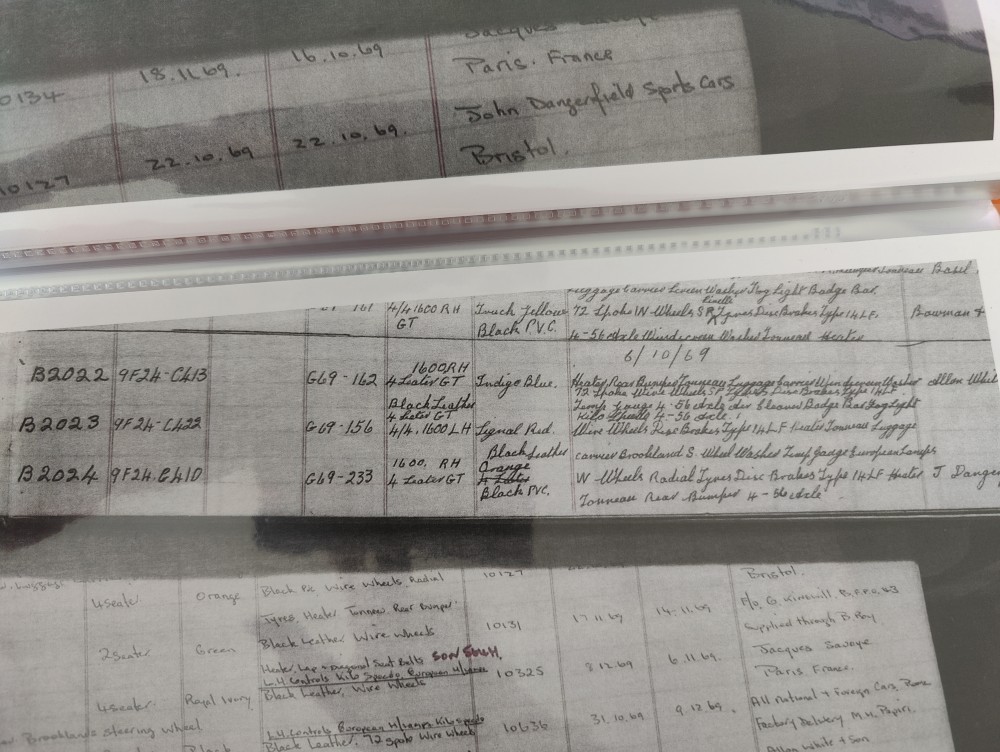 18.11.69. 16.10.69 Jacques Savoye
0134 Paris. France
22.10.69 22.10.69. John Dangerfield Sports Cars
10127 Bristol.
Tonneau Basil
Luggage Carrier Screen Washer Fog Light Badge Bar.
161 4/4 1600 RH Truck Yellow 72 Spoke W-Wheels SP Tyres Disc Brakes Type 14 LF. Bowman +
GT Black P.V.C. 4-56 Axle Windscreen Washer Tonneau Heater
6/10/69
B2022 9F24-C413 G69-162 1600 RH Indigo Blue. Heater Rear Bumper Tonneau Luggage Carrier Windscreen Washer Allon White
4 Seater GT 72 Spoke Wire Wheels SP Tyres Disc Brakes Type 14 LF
Black Leather 4-56 Axle Badge Bar Fog Light
B2023 9F24-C422 G69-156 4 Seater GT Wheels 4-56 Axle
4/4. 1600 LH Signal Red. Wire Wheels Disc Brakes Type 14 LF Heater Tonneau Luggage
Black Leather Carrier Brookland S. Wheel Washer Temp Gauge European Lamps
B2024 9F24.C410 G69-233 1600. RH Orange W-Wheels Radial Tyres Disc Brakes Type 14 LF Heater J. Dange
4 Seater GT 4 Seater Tonneau Rear Bumper 4-56 Axle
Black PVC.
4 Seater Orange Black Pvc Wire Wheels Radial 10127 Bristol.
Tyres, Heater Tonneau, Rear Bumper.
2 Seater Green Black Leather Wire Wheels 10131 17.11.69 14.11.69 Supplied through B. Roy
Heater Lap & Diagonal Seat Belts Jacques Savoye
4 Seater Royal Ivory L.H Controls Kilo Speedo, European H/lamps 10325 8.12.69 6.11.69. Paris. France.
Black Leather, Wire Wheels
Brooklands steering wheel L.H Controls European H/lamps Kilo speedo 10636 31.10.69 9.12.69. All National & Foreign Cars, Rome
Black Black Leather, 72 Spoke Wire Wheels Factory Delivery M.H.
Allon White & Son